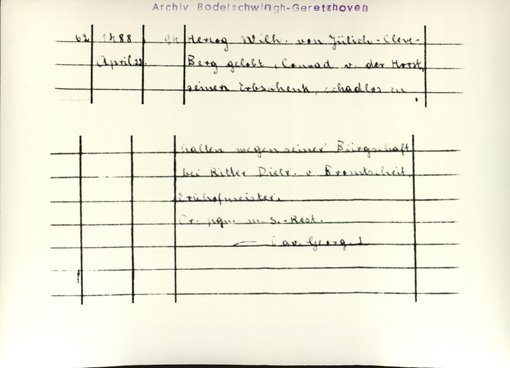 Archiv Bodelschwingh-Geretzhoven
62 1488 Herzog Wilh. von Jülich-Cleve-
April Berg gelobt, Conrad v. der Horst,
seinen Erbschenk, schadlos zu
halten wegen seiner Bürgschaft
bei Ritter Dietr. v. Bromtscheit,
Erbhofmeister.
Or. pgm. m. s.-Rest.